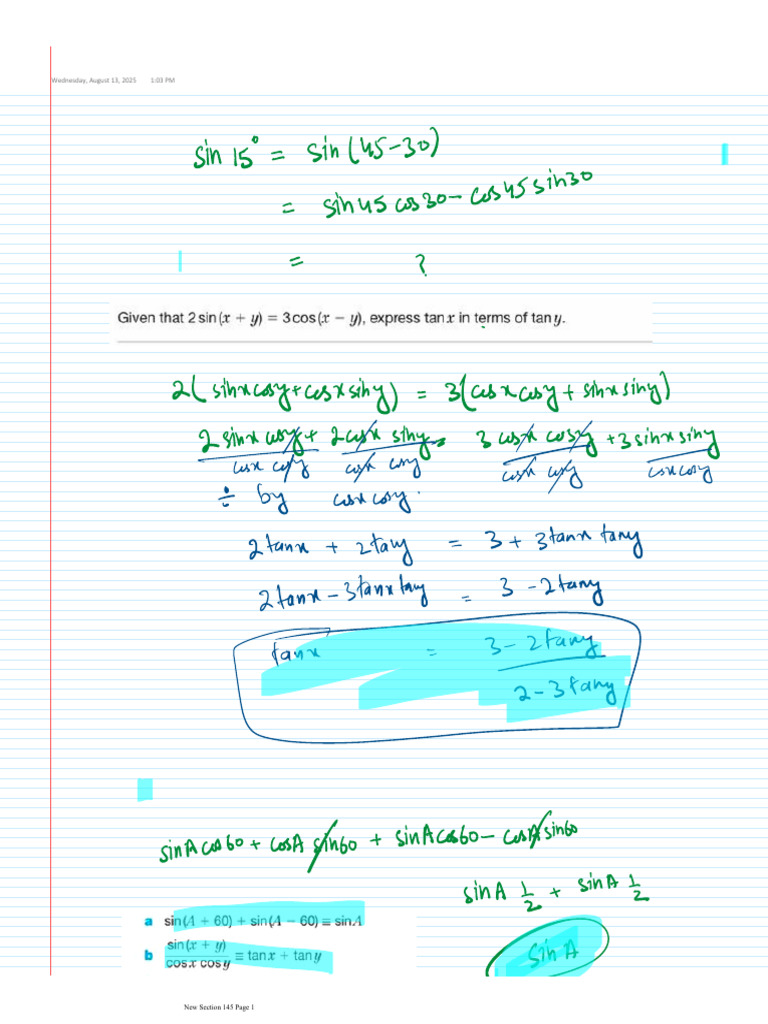 Wednesday, August 13, 2025 1:03 PM
sin 15° = sin(45-30)
= sin45 cos30 - cos45 sin30
= ?
Given that 2 sin(x + y) = 3 cos(x − y), express tan x in terms of tan y.
2(sinx cosy + cosx siny) = 3(cosx cosy + sinx siny)
2 sinx cosy + 2 cosx siny = 3 cosx cosy + 3 sinx siny
cosx cosy cosx cosy cosx cosy cosx cosy
÷ by cosx cosy.
2tanx + 2tany = 3 + 3tanx tany
2tanx - 3tanx tany = 3 - 2tany
tanx = 3 - 2tany
2 - 3tany
sinA cos60 + cosA sin60 + sinA cos60 - cosA sin60
sinA 1/2 + sinA 1/2
a sin(A + 60) + sin(A − 60) ≡ sin A
sin A
b sin(x + y)
≡ tan x + tan y
cos x cos y
New Section 145 Page 1